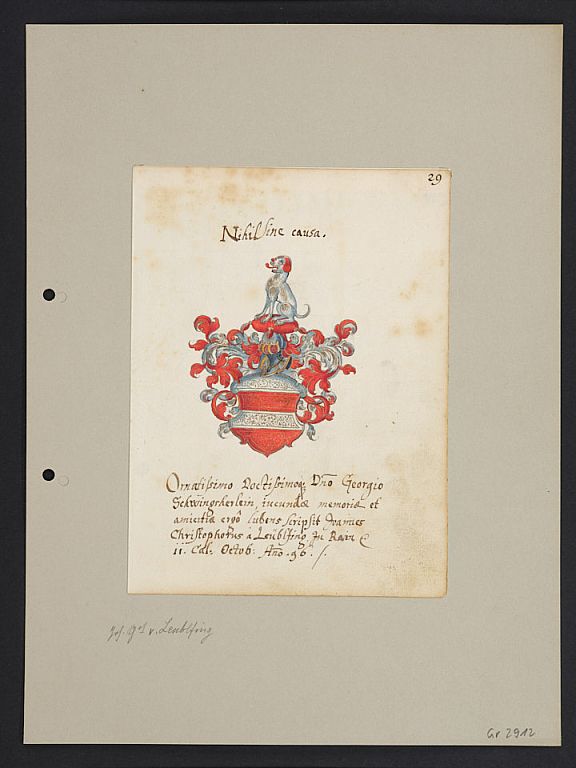 29
Nihil sine causa.
Ornatissimo Doctissimoq; Dño Georgio
Schwingsherlein, iucundæ memoriæ et
amicitiæ ergò lubens scripsit Joannes
Christophorus à Leüblfing zu Rain &
ii. Cal. Octob. Año. 96.
v. Leublfing
Gr 2912